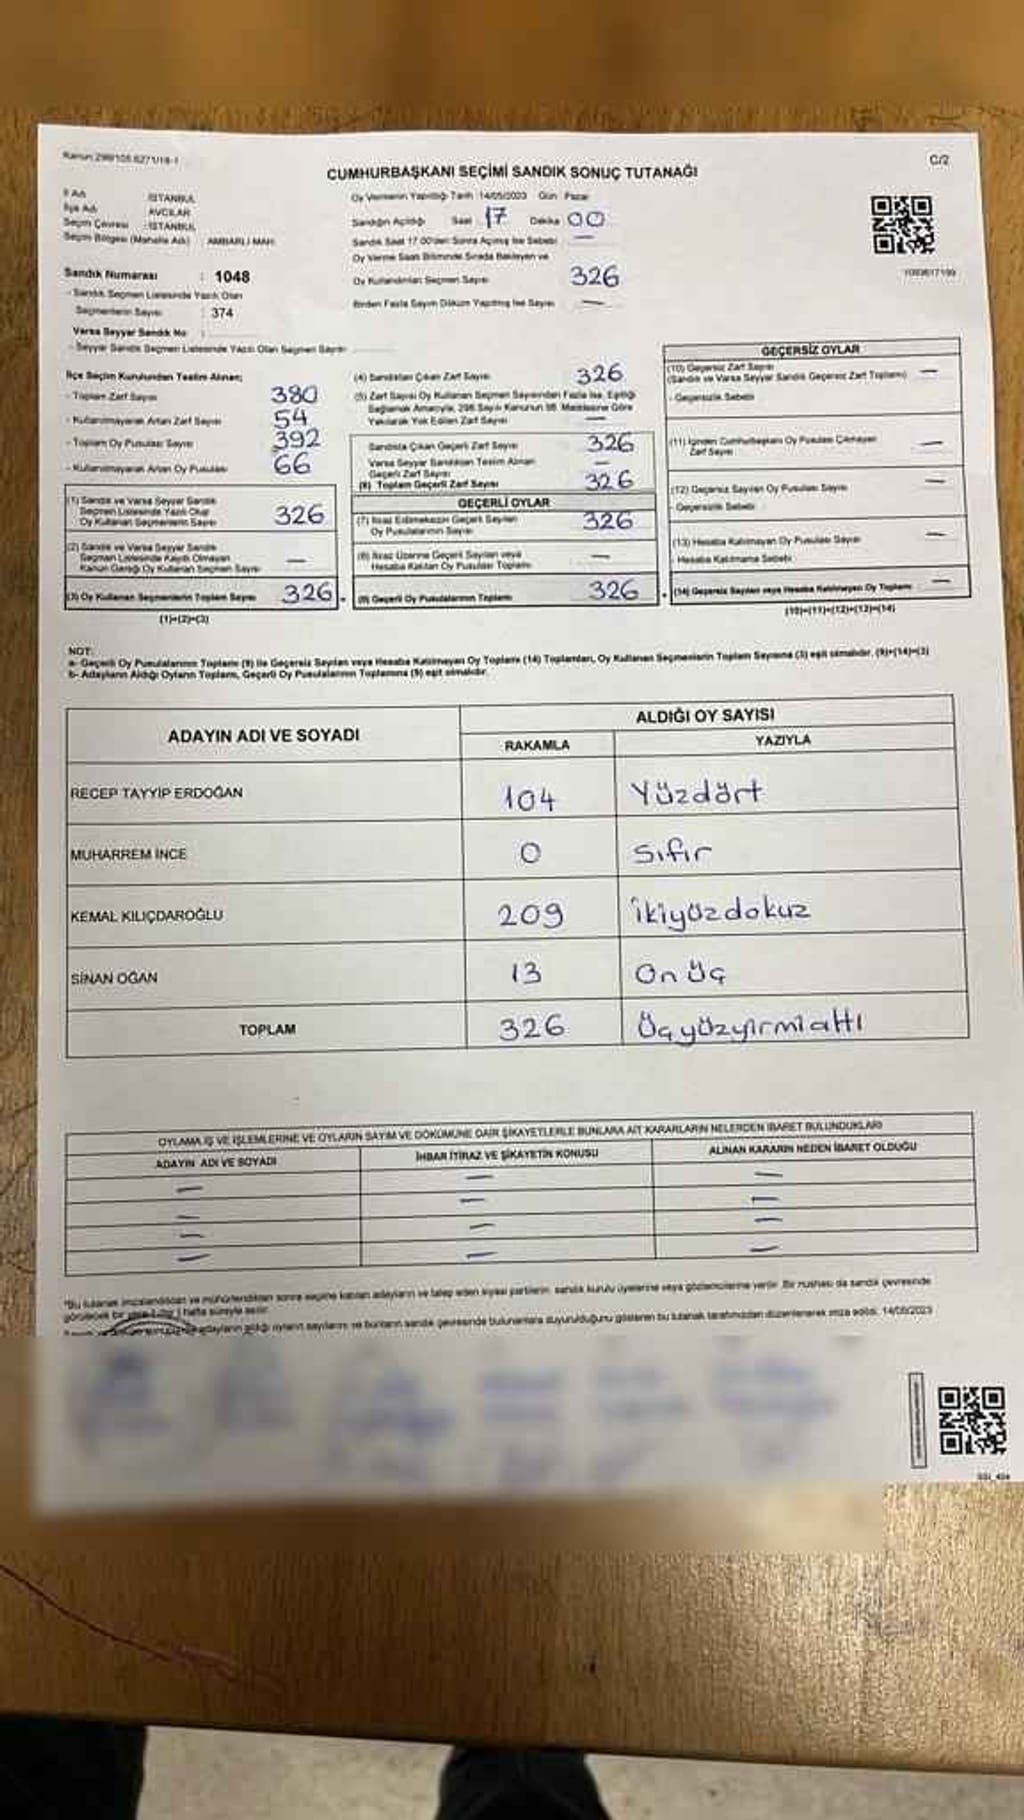 Kanun:298/105.6271/18-1
C/2
CUMHURBAŞKANI SEÇİMİ SANDIK SONUÇ TUTANAĞI
İl Adı İSTANBUL
İlçe Adı AVCILAR
Seçim Çevresi :İSTANBUL
Seçim Bölgesi (Mahalle Adı) : AMBARLI MAH.
Sandık Numarası : 1048
- Sandık Seçmen Listesinde Yazılı Olan
Seçmenlerin Sayısı : 374
Varsa Seyyar Sandık No :
- Seyyar Sandık Seçmen Listesinde Yazılı Olan Seçmen Sayısı
Oy Vermenin Yapıldığı Tarih :14/05/2023 Gün : Pazar
Sandığın Açıldığı Saat 17 Dakika 00
Sandık Saat 17.00'den Sonra Açılmış İse Sebebi —
Oy Verme Saati Bitiminde Sırada Bekleyen ve
Oy Kullandırılan Seçmen Sayısı 326
Birden Fazla Sayım Döküm Yapılmış İse Sayısı —
İlçe Seçim Kurulundan Teslim Alınan;
- Toplam Zarf Sayısı 380
- Kullanılmayarak Artan Zarf Sayısı 54
- Toplam Oy Pusulası Sayısı 392
- Kullanılmayarak Artan Oy Pusulası 66
(1) Sandık ve Varsa Seyyar Sandık
Seçmen Listesinde Yazılı Olup
Oy Kullanan Seçmenlerin Sayısı 326
(2) Sandık ve Varsa Seyyar Sandık
Seçmen Listesinde Kayıtlı Olmayan
Kanun Gereği Oy Kullanan Seçmen Sayısı —
(3) Oy Kullanan Seçmenlerin Toplam Sayısı 326
(1)+(2)=(3)
(4) Sandıktan Çıkan Zarf Sayısı 326
(5) Zarf Sayısı Oy Kullanan Seçmen Sayısından Fazla İse, Eşitliği
Sağlamak Amacıyla, 298 Sayılı Kanunun 98. Maddesine Göre
Yakılarak Yok Edilen Zarf Sayısı —
Sandıkta Çıkan Geçerli Zarf Sayısı 326
Varsa Seyyar Sandıktan Teslim Alınan
Geçerli Zarf Sayısı —
(6) Toplam Geçerli Zarf Sayısı 326
GEÇERLİ OYLAR
(7) İtiraz Edilmeksizin Geçerli Sayılan
Oy Pusulalarının Sayısı 326
(8) İtiraz Üzerine Geçerli Sayılan veya
Hesaba Katılan Oy Pusulası Toplamı —
(9) Geçerli Oy Pusulalarının Toplamı 326
GEÇERSİZ OYLAR
(10) Geçersiz Zarf Sayısı
(Sandık ve Varsa Seyyar Sandık Geçersiz Zarf Toplamı) —
- Geçersizlik Sebebi
(11) İçinden Cumhurbaşkanı Oy Pusulası Çıkmayan
Zarf Sayısı —
(12) Geçersiz Sayılan Oy Pusulası Sayısı —
- Geçersizlik Sebebi
(13) Hesaba Katılmayan Oy Pusulası Sayısı —
- Hesaba Katılmama Sebebi
(14) Geçersiz Sayılan veya Hesaba Katılmayan Oy Toplamı —
(10)+(11)+(12)+(13)=(14)
NOT:
a- Geçerli Oy Pusulalarının Toplamı (9) ile Geçersiz Sayılan veya Hesaba Katılmayan Oy Toplamı (14) Toplamları, Oy Kullanan Seçmenlerin Toplam Sayısına (3) eşit olmalıdır. (9)+(14)=(3)
b- Adayların Aldığı Oyların Toplamı, Geçerli Oy Pusulalarının Toplamına (9) eşit olmalıdır.
ADAYIN ADI VE SOYADI
ALDIĞI OY SAYISI
RAKAMLA YAZIYLA
RECEP TAYYİP ERDOĞAN 104 Yüzdört
MUHARREM İNCE 0 Sıfır
KEMAL KILIÇDAROĞLU 209 ikiyüzdokuz
SİNAN OĞAN 13 On Üç
TOPLAM 326 Üçyüzyirmialtı
OYLAMA İŞ VE İŞLEMLERİNE VE OYLARIN SAYIM VE DÖKÜMÜNE DAİR ŞİKAYETLERLE BUNLARA AİT KARARLARIN NELERDEN İBARET BULUNDUKLARI
ADAYIN ADI VE SOYADI İHBAR İTİRAZ VE ŞİKAYETİN KONUSU ALINAN KARARIN NEDEN İBARET OLDUĞU
— — —
— — —
— — —
— — —
*Bu tutanak imzalandıktan ve mühürlendikten sonra seçime katılan adayların ve talep eden siyasi partilerin sandık kurulu üyelerine veya gözlemcilerine verilir. Bir nüshası da sandık çevresinde
görülecek bir yere 1 (bir ) hafta süreyle asılır.
adayların aldığı oyların sayılarını ve bunların sandık çevresinde bulunanlara duyurulduğunu gösteren bu tutanak tarafımızdan düzenlenerek imza edildi. 14/05/2023